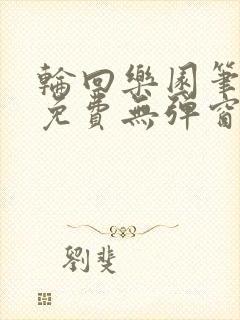 輪回樂園筆
免費無彈窗
劉斐